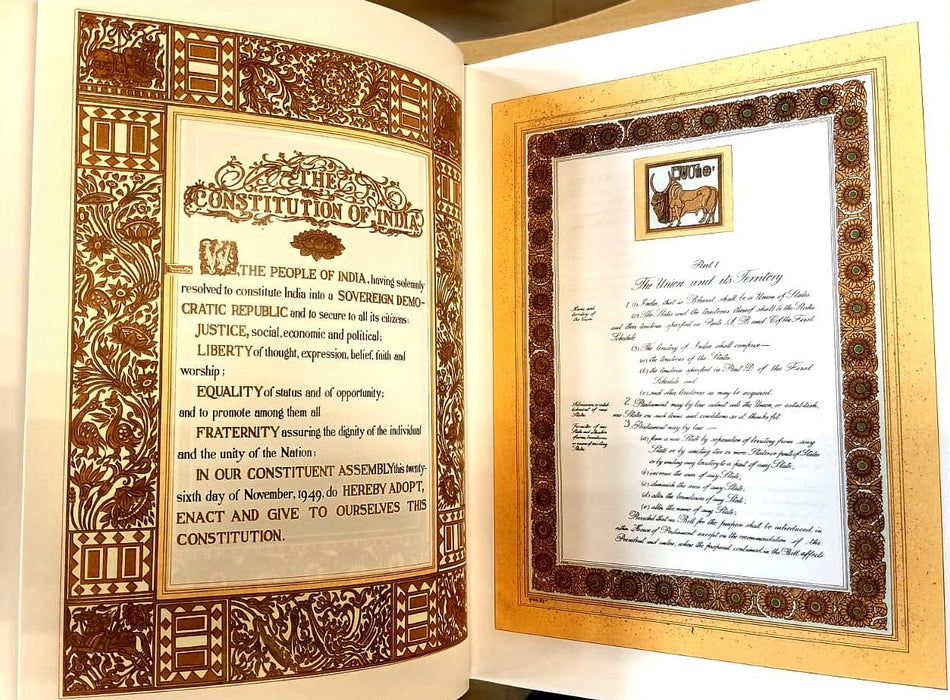 THE
CONSTITUTION OF INDIA
WE, THE PEOPLE OF INDIA, having solemnly
resolved to constitute India into a SOVEREIGN DEMO-
CRATIC REPUBLIC and to secure to all its citizens:
JUSTICE, social, economic and political;
LIBERTY of thought, expression, belief, faith and
worship;
EQUALITY of status and of opportunity;
and to promote among them all
FRATERNITY assuring the dignity of the individual
and the unity of the Nation;
IN OUR CONSTITUENT ASSEMBLY this twenty-
sixth day of November, 1949, do HEREBY ADOPT,
ENACT AND GIVE TO OURSELVES THIS
CONSTITUTION.
Part I
The Union and its Territory
Name and
territory of
the Union
1 (1) India, that is Bharat, shall be a Union of States
(2) The States and the territories thereof shall be the States
and their territories specified in Parts A, B and C of the First
Schedule
(3) The territory of India shall comprise—
(a) the territories of the States;
(b) the territories specified in Part D of the First
Schedule and
(c) such other territories as may be acquired.
2. Parliament may by law admit into the Union, or establish,
new States on such terms and conditions as it thinks fit.
3. Parliament may by law—
(a) form a new State by separation of territory from any
State or by uniting two or more States or parts of States
or by uniting any territory to a part of any State;
(b) increase the area of any State;
(c) diminish the area of any State;
(d) alter the boundaries of any State;
(e) alter the name of any State;
Provided that no Bill for the purpose shall be introduced in
either House of Parliament except on the recommendation of the
President and unless, where the proposal contained in the Bill affects